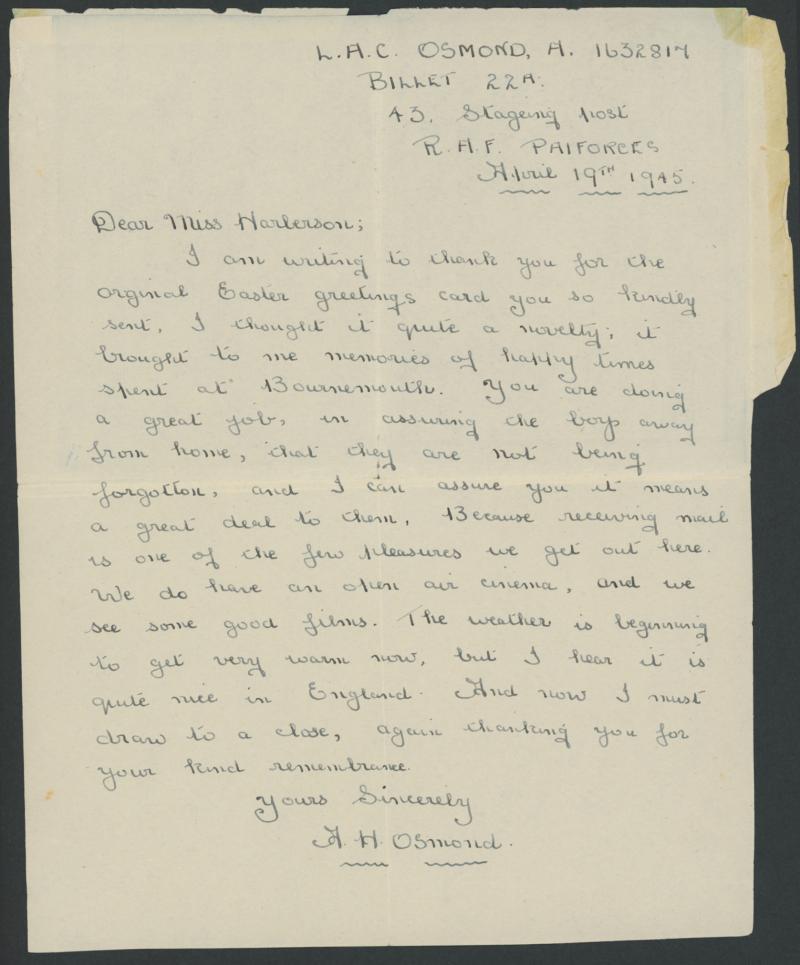 L.A.C. OSMOND, A. 1632817
BILLET 22A.
43. Stageing post
R.A.F. PAIFORCES
April 19TH 1945.
Dear Miss Harberson;
I am writing to thank you for the
orginal Easter greetings card you so kindly
sent, I thought it quite a novelty; it
brought to me memories of happy times
spent at Bournemouth. You are doing
a great job, in assuring the boys away
from home, that they are not being
forgotton, and I can assure you it means
a great deal to them, Because receiving mail
is one of the few pleasures we get out here.
We do have an open air cinema, and we
see some good films. The weather is beginning
to get very warm now, but I hear it is
quite nice in England. And now I must
draw to a close, again thanking you for
your kind remembrance.
Yours Sincerely
A. H. Osmond.